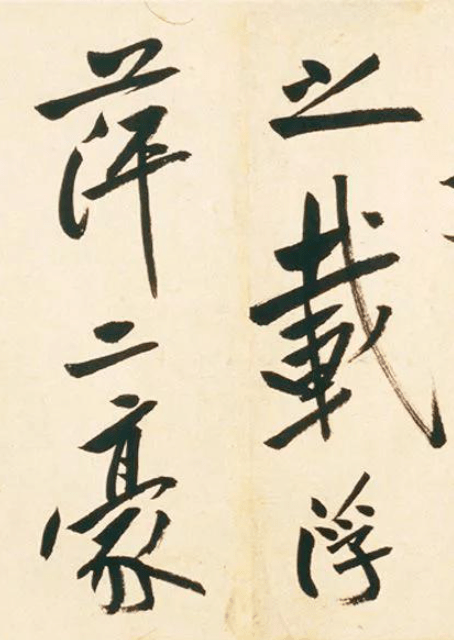 之載浮
萍二豪